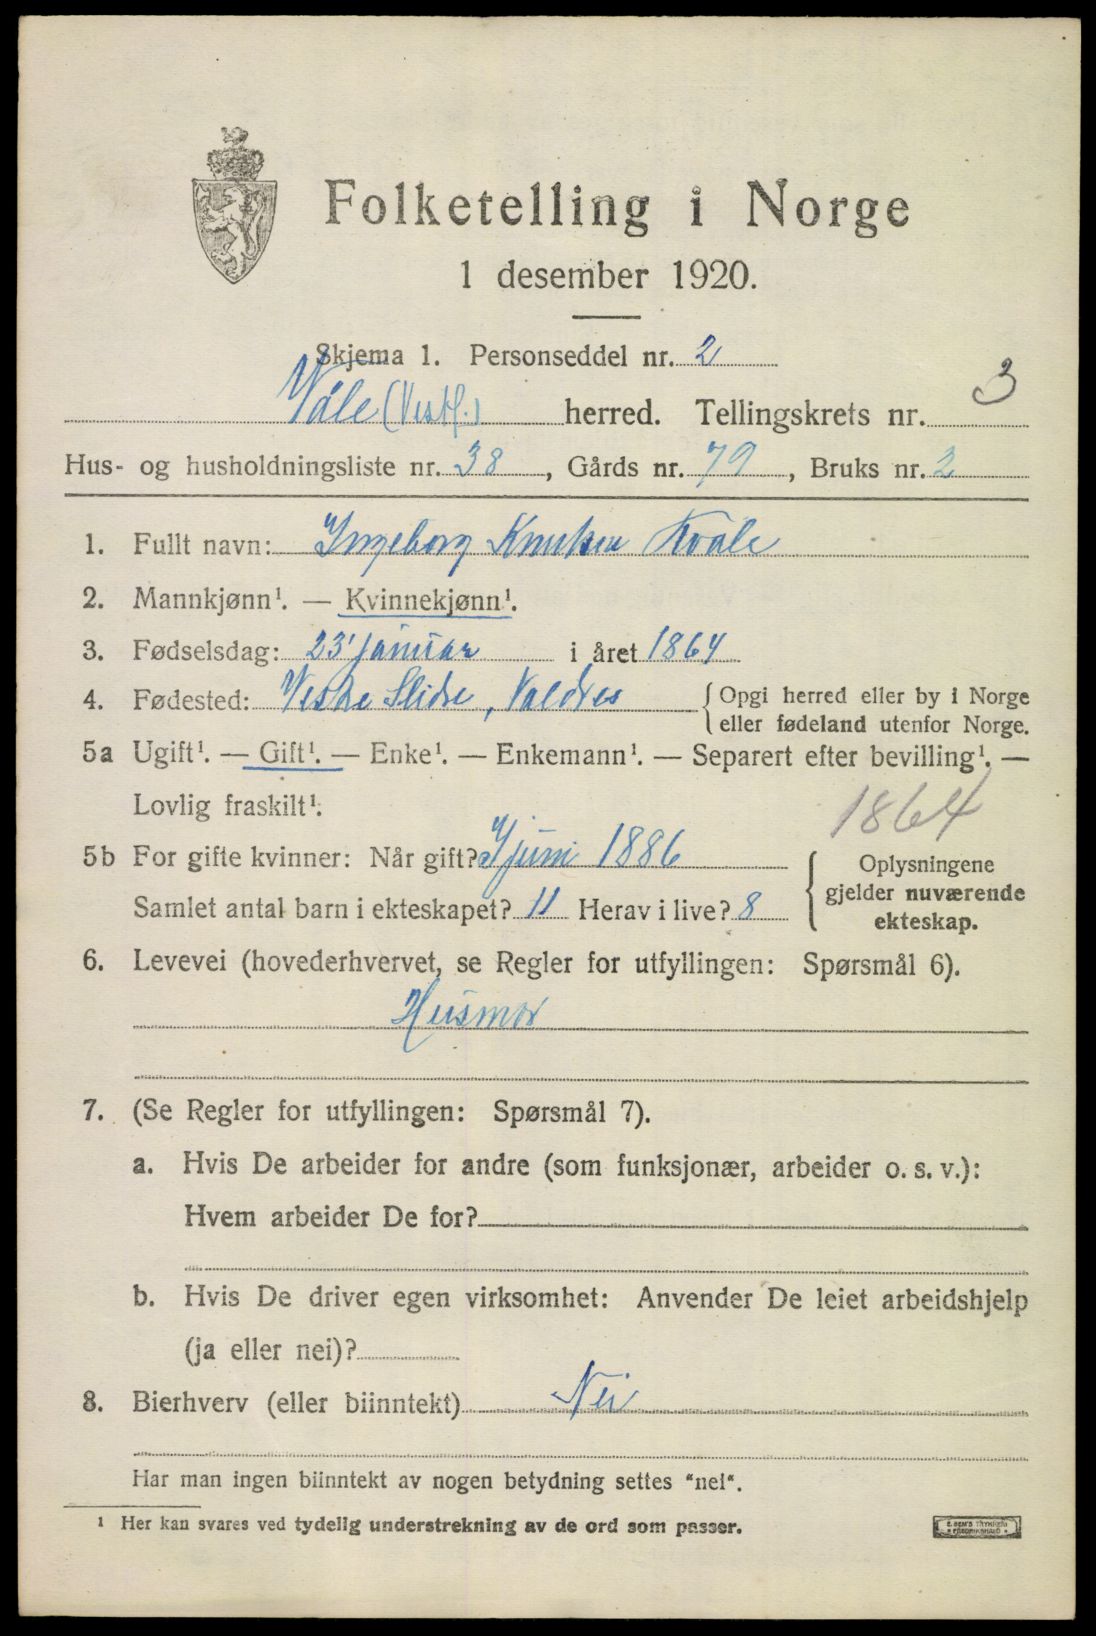 Folketelling i Norge
1 desember 1920.
Skjema 1. Personseddel nr. 2
Våle (Vestf.) herred. Tellingskrets nr. 3
Hus- og husholdningsliste nr. 38, Gårds nr. 79, Bruks nr. 2
1. Fullt navn: Ingeborg Knutsen Kvåle
2. Mannkjønn¹. — Kvinnekjønn¹.
3. Fødselsdag: 23' januar i året 1864
4. Fødested: Vestre Slidre, Valdres { Opgi herred eller by i Norge
eller fødeland utenfor Norge.
5a Ugift¹. — Gift¹. — Enke¹. — Enkemann¹. — Separert efter bevilling¹. —
Lovlig fraskilt¹.
1864
5b For gifte kvinner: Når gift? juni 1886
Samlet antal barn i ekteskapet? 11 Herav i live? 8
{ Oplysningene
gjelder nuværende
ekteskap.
6. Levevei (hovederhvervet, se Regler for utfyllingen: Spørsmål 6).
Husmor
7. (Se Regler for utfyllingen: Spørsmål 7).
a. Hvis De arbeider for andre (som funksjonær, arbeider o. s. v.):
Hvem arbeider De for?
b. Hvis De driver egen virksomhet: Anvender De leiet arbeidshjelp
(ja eller nei)?
8. Bierhverv (eller biinntekt) Nei
Har man ingen biinntekt av nogen betydning settes "nei".
¹ Her kan svares ved tydelig understrekning av de ord som passer.